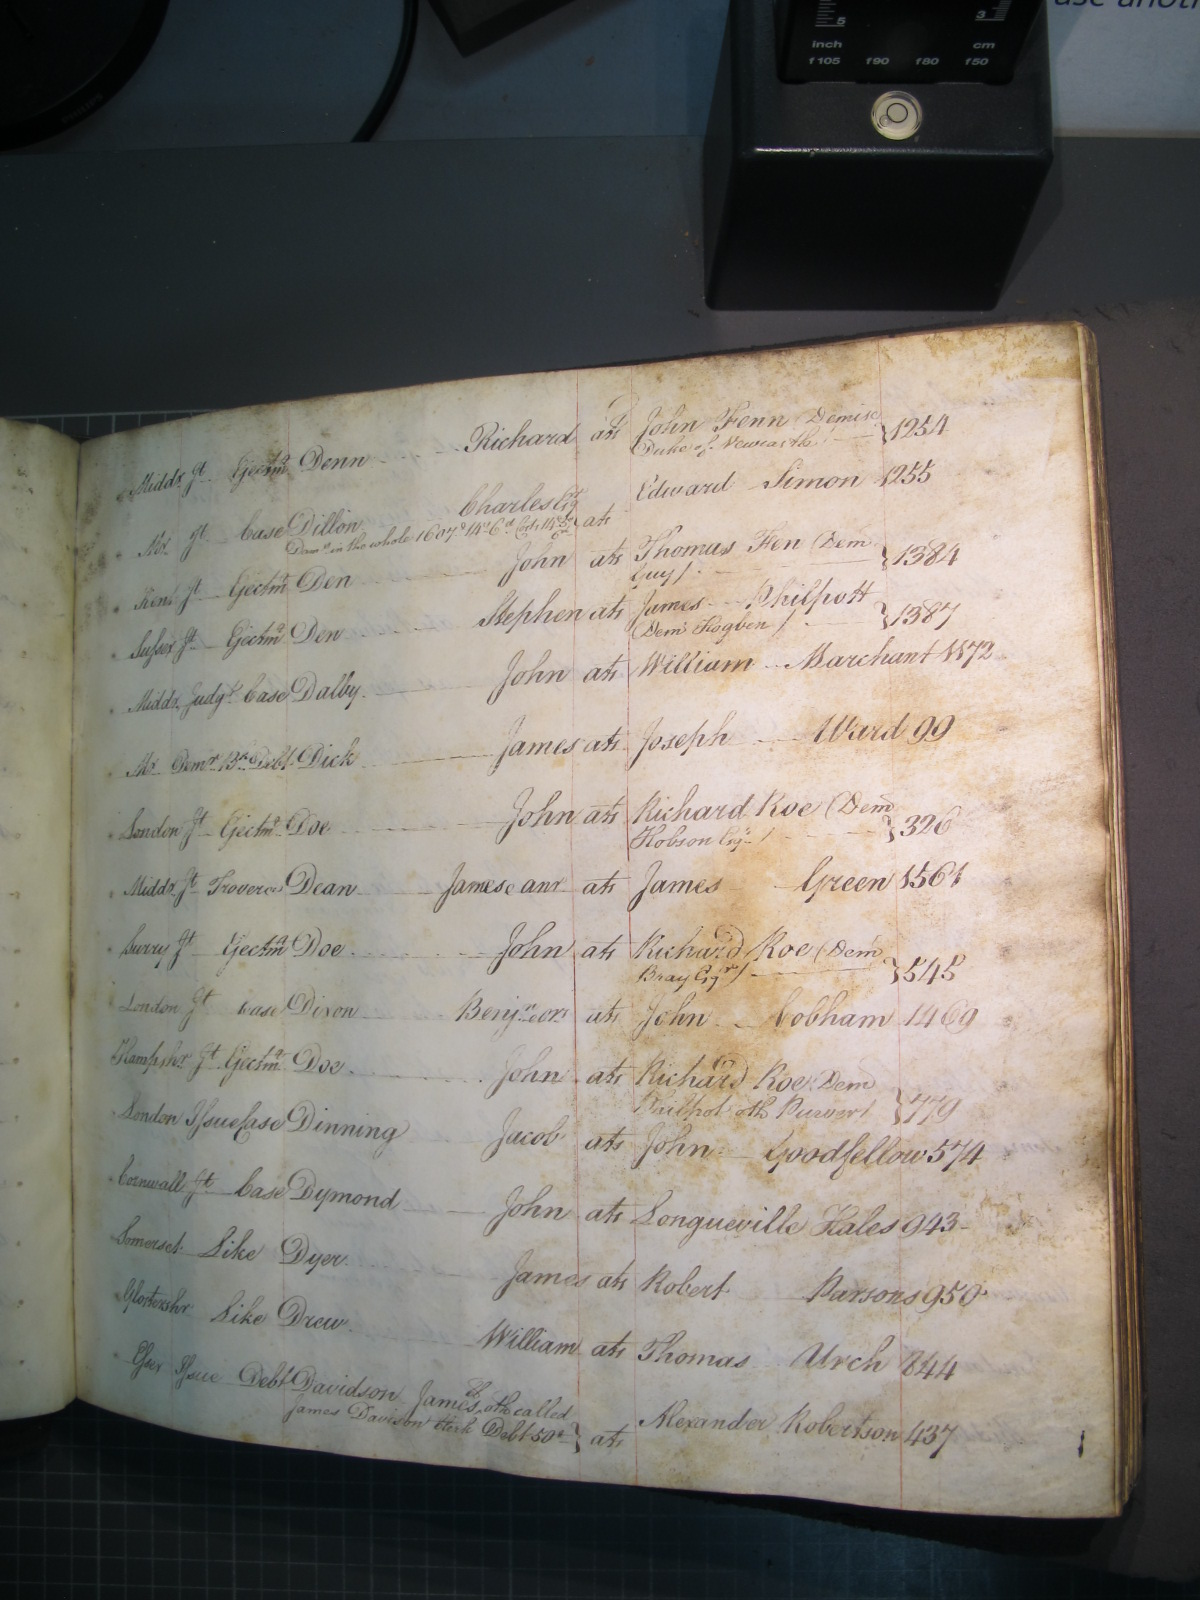 5 3
inch cm
f105 f90 f80 f50
Middx Jt Ejectmt Denn Richard ats John Fenn (Demise
Duke of Newcastle) } 1254
Case Dillon Charles Esqr ats Edward Simon 1255
in the whole 1607
Kent Jt Ejectmt Den John ats Thomas Fen (Dem
Guy) } 1384
Sussex Jt Ejectmt Den Stephen ats James Philpott
(Dem Hogben) } 1387
Middx Judgt Case Dalby John ats William Marchant 1172
Dick James ats Joseph Ward 99
London Jt Ejectmt Doe John ats Richard Roe (Dem
Hobson Esqr) } 326
Middx Jt Trover Dean James ats James Green 1561
Surry Jt Ejectmt Doe John ats Richard Roe (Dem
Bray Esqr) } 545
London Jt Case Dixon Benjn ats John Cobham 1469
Hampshr Jt Ejectmt Doe John ats Richard Roe Dem
oth } 779
London Issue Case Dinning Jacob ats John Goodfellow 574
Cornwall Jt Case Dymond John ats Longueville Hales 943
Somerset Like Dyer James ats Robert Parsons 950
Glostershr Like Drew William ats Thomas Urch 844
Issue Debt Davidson James oth called
James Davison Clerk Debt 50 } ats Alexander Robertson 437